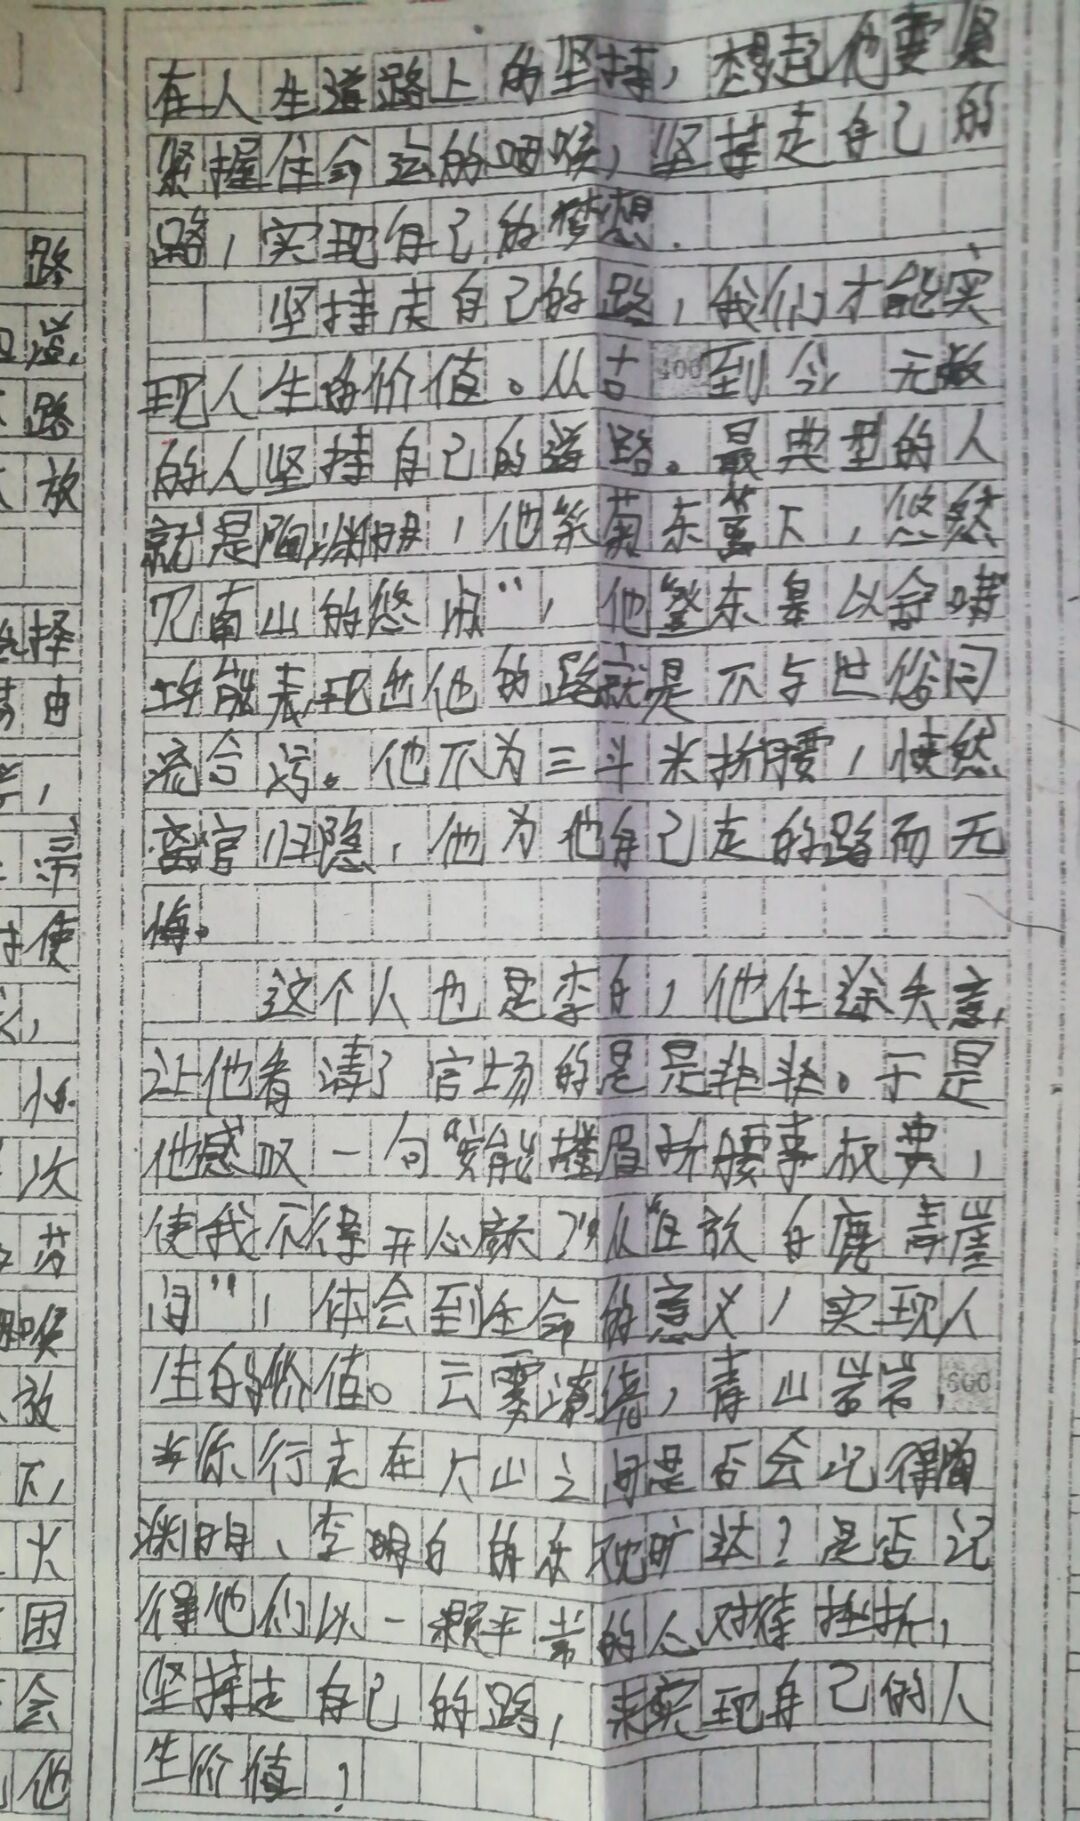 在人生道路上的坚持，想起他要紧
紧握住命运的咽喉，坚持走自己的
路，实现自己的梦想.
坚持走自己的路，我们才能实
现人生的价值。从古400到今，无数
的人坚持自己的道路。最典型的人
就是陶渊明，他采菊东篱下，悠然
见南山的悠闲"，他登东皋以舒啸
均能表现出他的路就是不与世俗同
流合污。他不为三斗米折腰，
官归隐，他为他自己走的路而无
悔。
这个人也是李白，他仕途失意，
让他看清了官场的是是非非。于是
他感叹一句"安能摧眉折腰事权贵，
使我不得开心颜"从"且放白鹿青崖
间"，体会到生命的意义，实现人
生的价值。云雾缭绕，青山岩岩，600
当你行走在大山之间是否会记得陶
渊明、李白的乐观旷达？是否记
得他们以一颗平常的心对待挫折，
坚持走自己的路，来实现自己的人
生价值！
路
路
放
择
由
使
次
芬
喉
放
下，
火
困
会
他